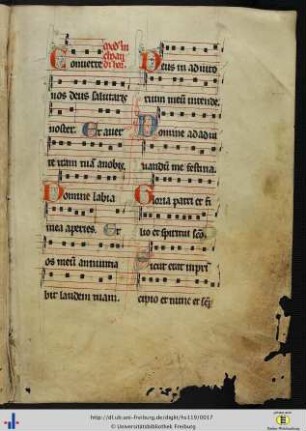 Converte
nos deus salutaris
noster. Et aver
te iram tuā anobis
Domine labia
mea aperies. Et
os meū annuntia
bit laudem tuam.
Deus in adiuto
rium meū intende.
Domine ad adiu
vandū me festina.
Gloria patri et fi
lio et spiritui scō.
Sicut erat in pri
cipio et nunc et sēp
http://dl.ub.uni-freiburg.de/diglit/hs119/0017
© Universitätsbibliothek Freiburg